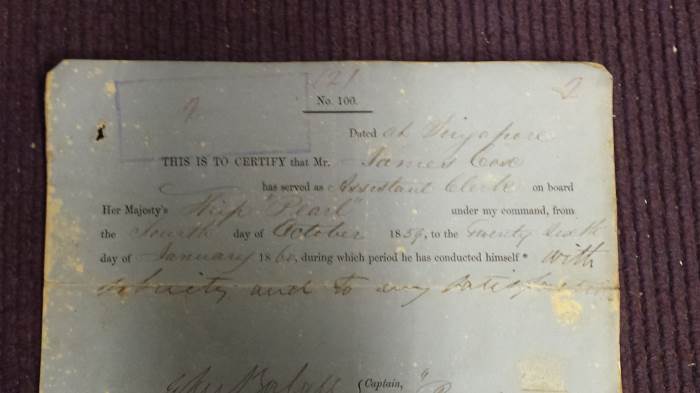 121
2
2
No. 100.
Dated at Singapore
THIS IS TO CERTIFY that Mr. James Cox
has served as Assistant Clerk on board
Her Majesty's Ship "Pearl" under my command, from
the fourth day of October 1859, to the Twenty sixth
day of January 1860, during which period he has conducted himself* with
sobriety and to my satisfaction
Captain,